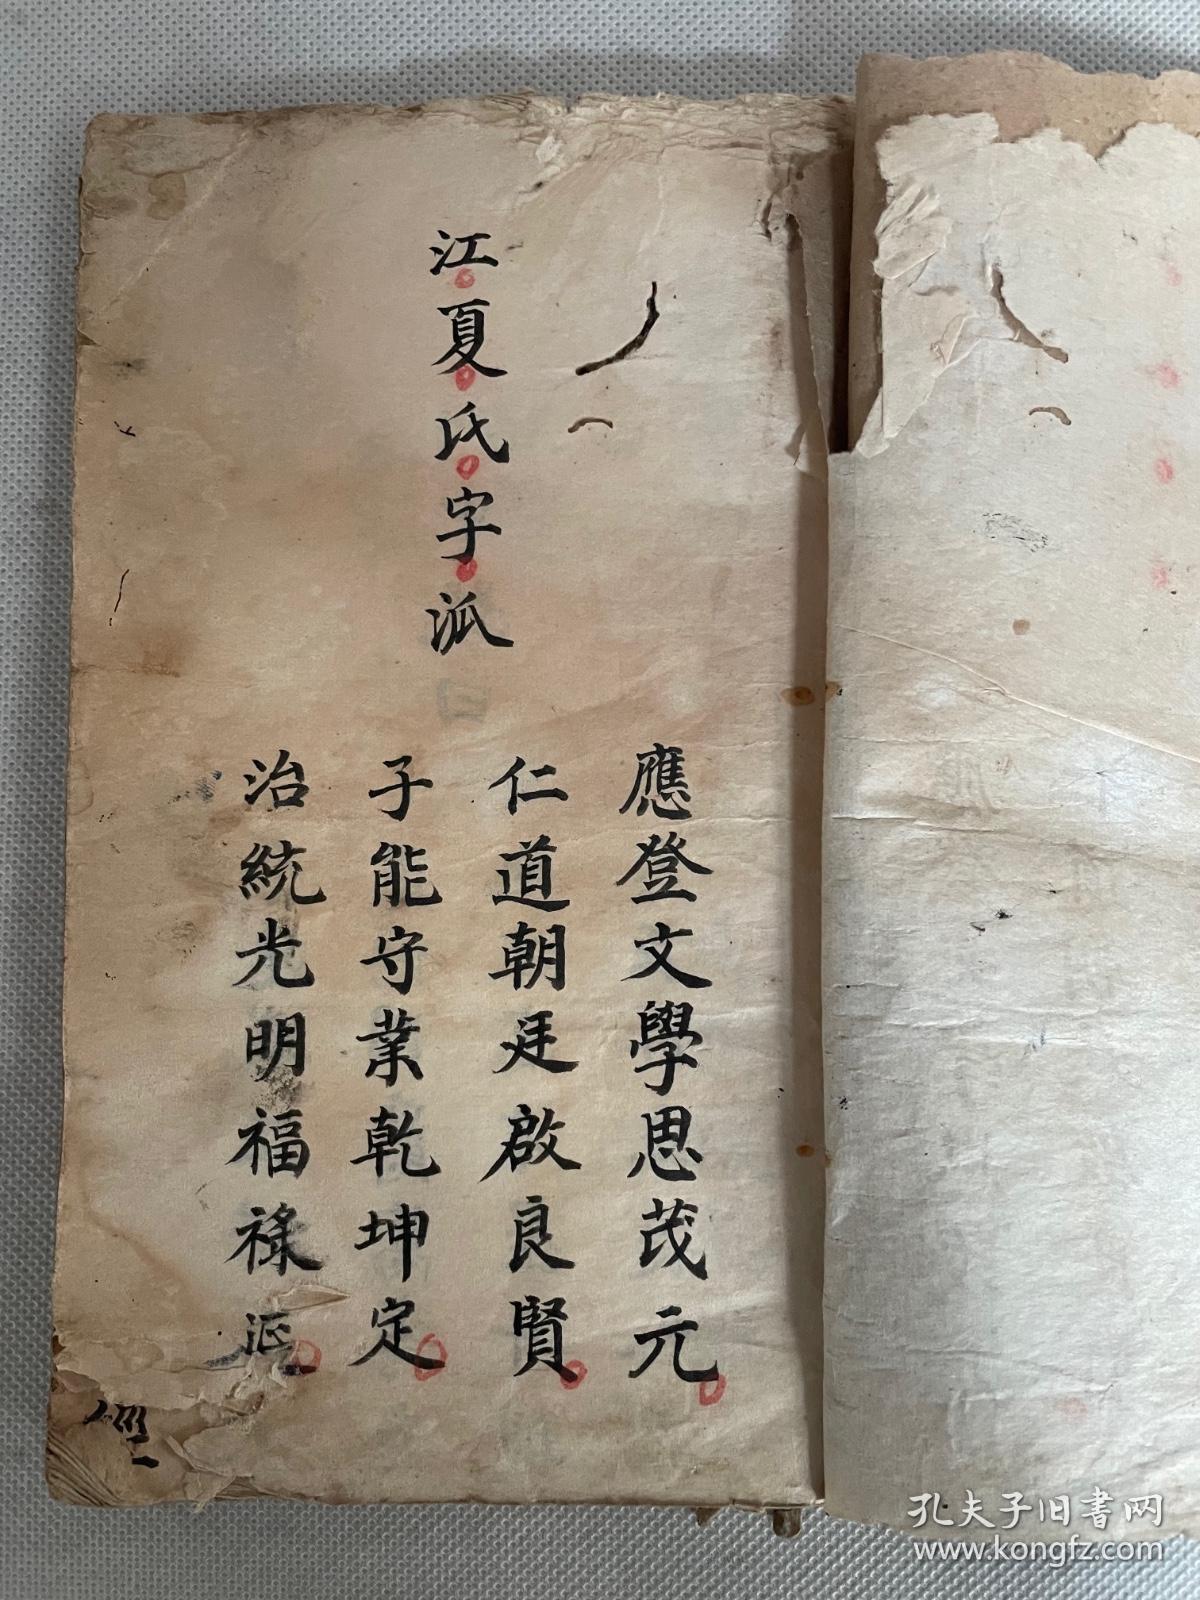 江夏氏字派
應登文學思茂元
仁道朝廷啟良賢
子能守業乾坤定
治統光明福祿
孔夫子旧書网
www.kongfz.com